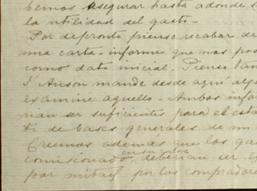 bemos asegurar hasta adonde s
la utilidad del gasto.-
Por de pronto pienso recabar de
una carta-informe que nos pos
como dato inicial. Pienso tam
d'Anson mande desde aquí alg
examine aquello.- Ambos infor
rian ser suficientes para el esta
ti de bases generales de un
Creemos además que los ga
en su caso
comisionado, deberían ser
por mitad por los compradores